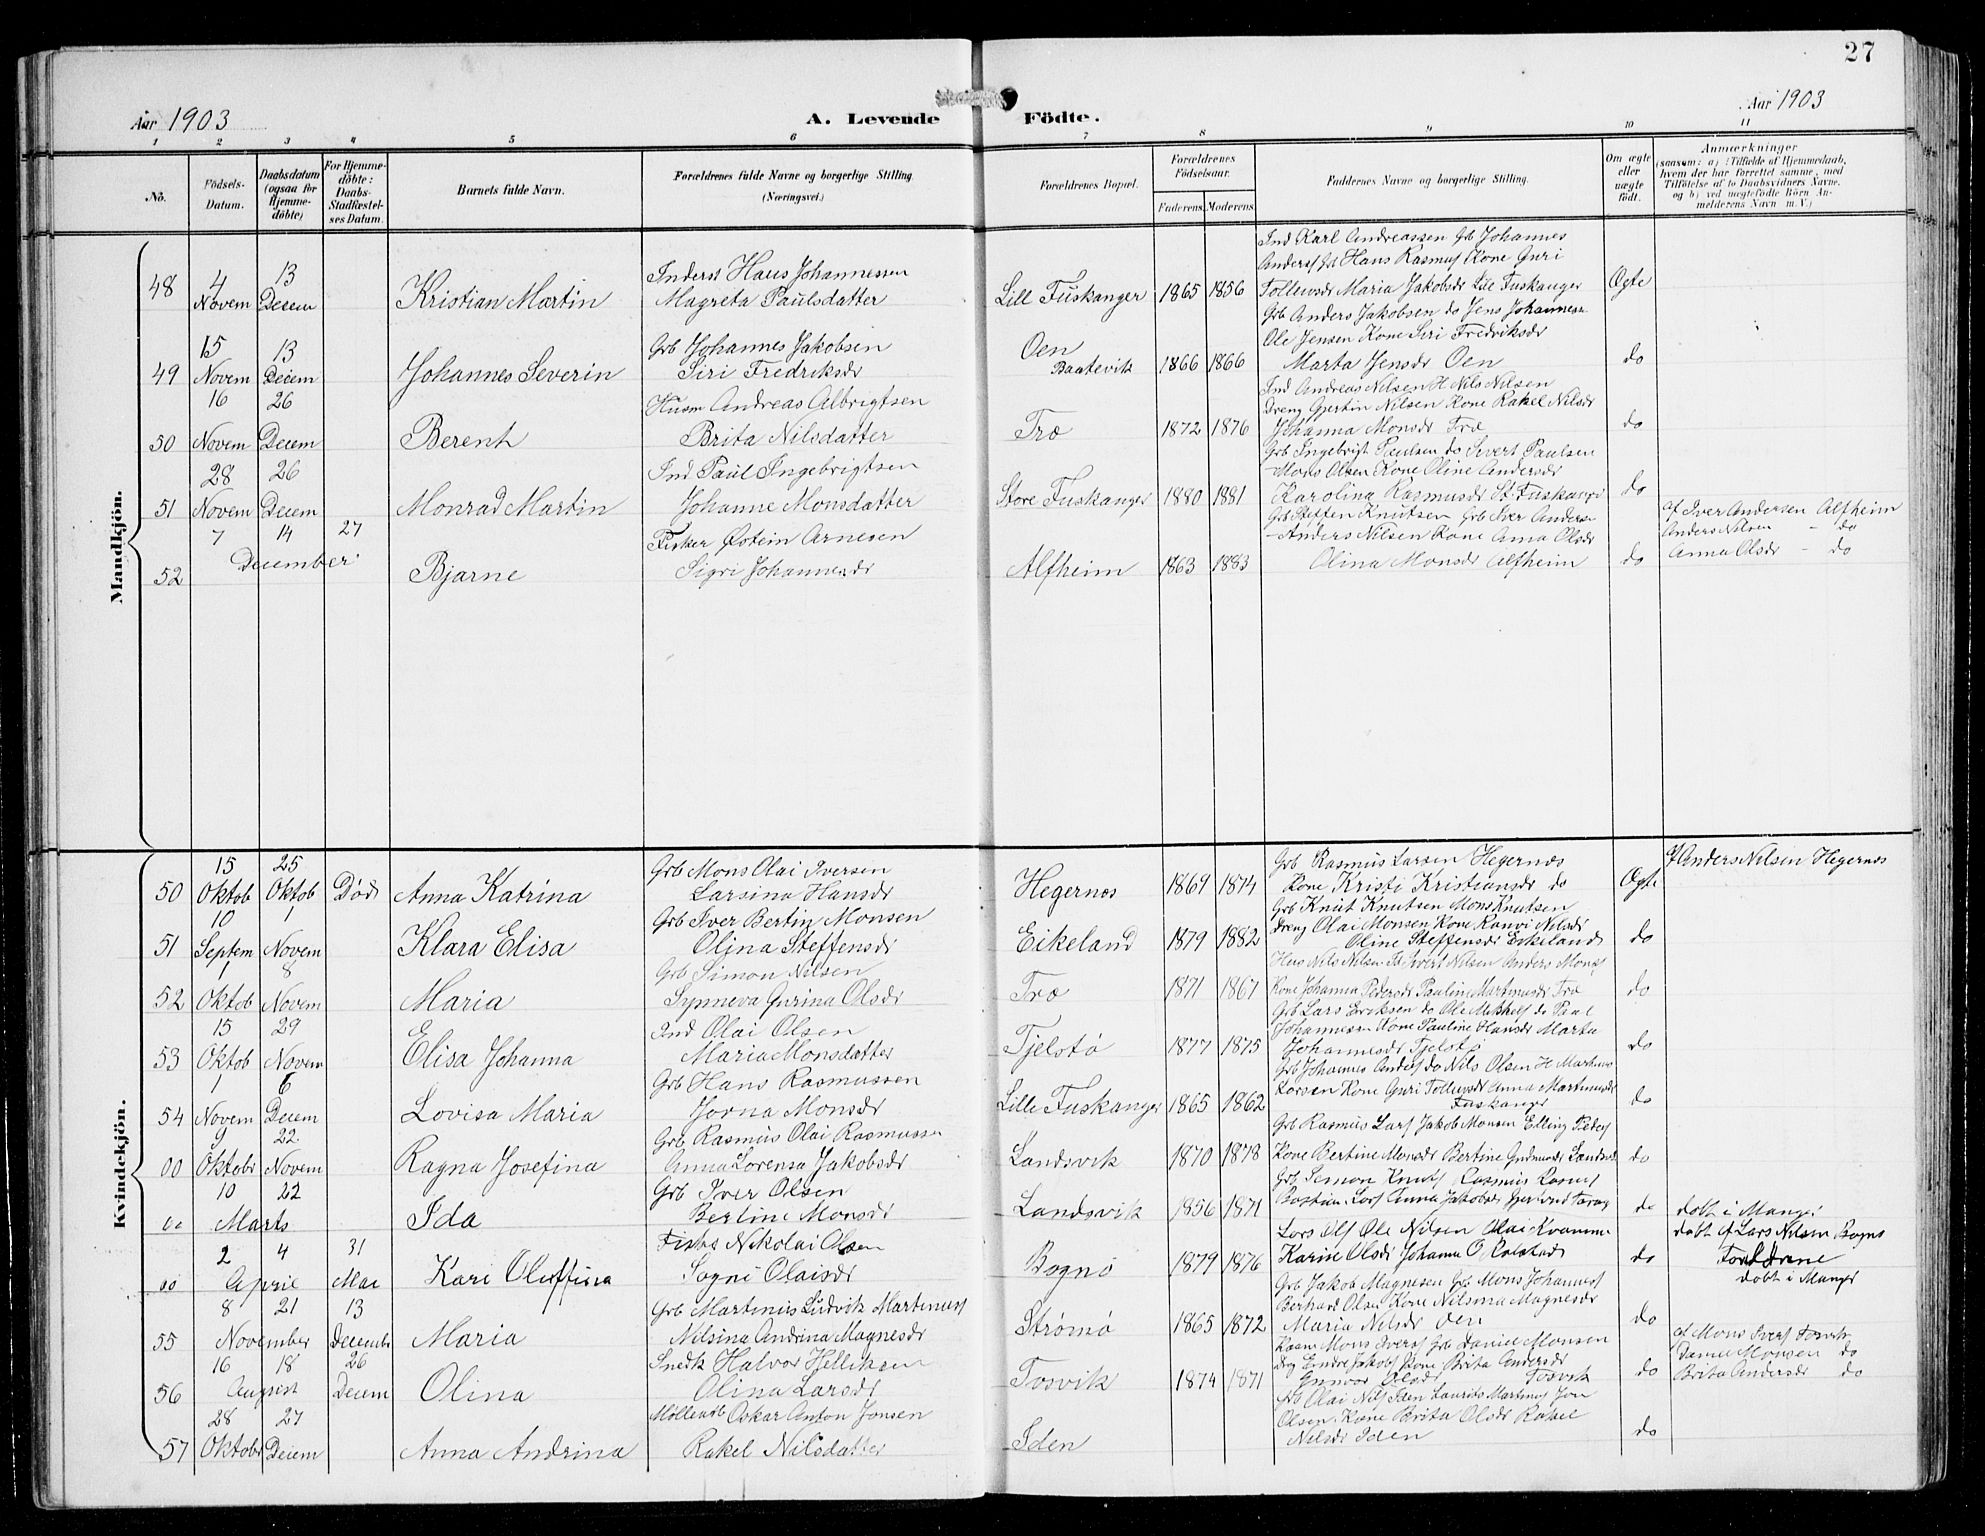 27
Aar 1903
A. Levende Födte.
Aar 1903
1 2 3 4 5 6 7 8 9 10 11
No.
Födsels-Datum.
Daabsdatum (ogsaa for Hjemme-döbte)
For Hjemme-döbte: Daabs-Stadfæstel-ses Datum.
Barnets fulde Navn.
Forældrenes fulde Navne og borgerlige Stilling. (Næringsvei.)
Forældrenes Bopæl.
Forældrenes Födselsaar.
Faderens. Moderens.
Faddernes Navne og borgerlige Stilling.
Om ægte eller uægte födt.
Anmærkninger
(saasom: a) i Tilfælde af Hjemmedaab, hvem der har forrettet samme, med Tilföielse af to Daabsvidners Navne, og b) ved uægtefödte Börn An-melderens Navn m. V.)
Mandkjön.
48 4 Novem 13 Decem Kristian Martin
Inderst Hans Johannessen
Magreta Paulsdatter
Lill Fuskanger 1865 1856
Ind Karl Andreassen Grb Johannes
Anders Hans Rasmus Kone Guri
Tollevsdr Maria Jakobsdr Lille Fuskanger
Ægte
49 15 Novem 13 Decem Johannes Severin
Grb Johannes Jakobsen
Siri Fredriksdr
Oen Baatevik 1866 1866
Grb Anders Jakobsen do Jens Johannesn
Ole Jensen Kone Siri Fredriksdr
Marta Jensdr Oen
do
50 16 Novem 26 Decem Berent
Husm Andreas Albrigtsen
Brita Nilsdatter
Træ 1872 1876
Ind Andreas Nilsen H Nils Nilsen
Dreng Gjertin Nilsen Kone Rakel Nilsdr
Johanna Monsdr Træ
do
51 28 Novem 26 Decem Monrad Martin
Ind Paul Ingebrigtsen
Johanne Monsdatter
Store Fuskanger 1880 1881
Grb Ingebrigt Paulsen do Sivert Paulsen
Mons Olsen Kone Oline Andersdr
Karolina Rasmusdr St: Fuskanger
do
52 7 14 December 27 Bjarne
Fisker Østein Arnesen
Sigri Johannesdr
Alfheim 1863 1883
Grb Steffen Knutsen Grb Iver Anderse
Anders Nilsen Kone Anna Olsdr
Olina Monsdr Alfheim
do
af Iver Andersen Alfheim
Anders Nilsen - do
Anna Olsdr - do
Kvindekjön.
50 15 Oktob 25 Oktob Død Anna Katrina
Grb Mons Olai Iversen
Larsina Hansdr
Hegernæs 1869 1874
Grb Rasmus Larsen Hegernæs
Kone Kristi Kristiansdr do
Ægte
af Anders Nilsen Hegernæs
51 10 Septem 1 Novem Klara Elisa
Grb Iver Bertin Monsen
Olina Steffensdr
Eikeland 1879 1882
Grb Knut Knutsen Mons Knutsen
Dreng Olai Monsen Kone Ranvi Nilsdr
Oline Steffensdr Eikeland
do
52 1 Oktob 8 Novem Maria
Grb Simon Nilsen
Synneva Gurina Olsdr
Træ 1871 1861
Nils Nilsen Sivert Nilsen Anders Mons
Kone Johanna Pedersdr Pauline Martinusdr Træ
do
53 15 Oktob 29 Novem Elisa Johanna
Ind Olai Olsen
Maria Monsdatter
Tjelstø 1877 1875
Grb Lars Eriksen do Ole Mikkels do Paul
Johannesen Kone Pauline Hansdr Marta
Johannesdr Tjelstø
do
54 1 Novem 6 Decem Lovisa Maria
Grb Hans Rasmussen
Jorna Monsdr
Lille Fuskanger 1865 1862
Grb Johannes Anders do Nils Olsen H Martinus
Larsen Kone Guri Tollevsdr Anna Martinusdr
Fuskanger
do
00 9 Oktobr 22 Novem Ragna Josefina
Grb Rasmus Olai Rasmussen
Anna Lorensa Jakobsdr
Landsvik 1870 1878
Grb Rasmus Lars Jakob Monsen Elling Peders
Kone Bertine Monsdr Bertine Gudmunds Landsvik
do
00 10 22 Marts Ida
Grb Iver Olsen
Bertine Monsdr
Landsvik 1856 1871
Grb Simon Knuds Rasmus Rasmus
Bastian Lars Anna Jakobsdr
do
døbt i Manger
00 2 4 April 31 Mai Kari Oluffina
Nikolai Olsen
Sogni Olaisdr
Bognø 1879 1876
Lars Ols Ole Nilsen Olai Kvamme
Karine Olsdr Johanna O
do
døbt af Lars Nilsen Bognø
Forældrene
døbt i Manger
55 8 21 November 13 Decembr Maria
Grb Martinus Ludvik Martinus
Nilsina Andrina Magnesdr
Strømø 1865 1872
Grb Jakob Magnesen Grb Mons Johannes
Berhard Olsen Kone Nilsina Magnesdr
Maria Nilsdr Oen
do
56 16 18 August 26 Decem Olina
Snedk Halvor Helliksen
Olina Larsdr
Tosvik 1874 1871
Mons Ivers Grb Daniel Monsen
Drg Endre Jakobs Kone Brita Andersdr
Gunvor Olsdr Tosvik
do
af Mons Ivers Tosvik
Daniel Monsen do
Brita Andersdr do
57 28 Oktobr 27 Decem Anna Andrina
Møllearb Oskar Anton Jonsen
Rakel Nilsdatter
Iden
Grb Olai Nils Iden Laurits Martinus Jon
Olsen Kone Brita Olsdr Rakel
Nilsdr Iden
do